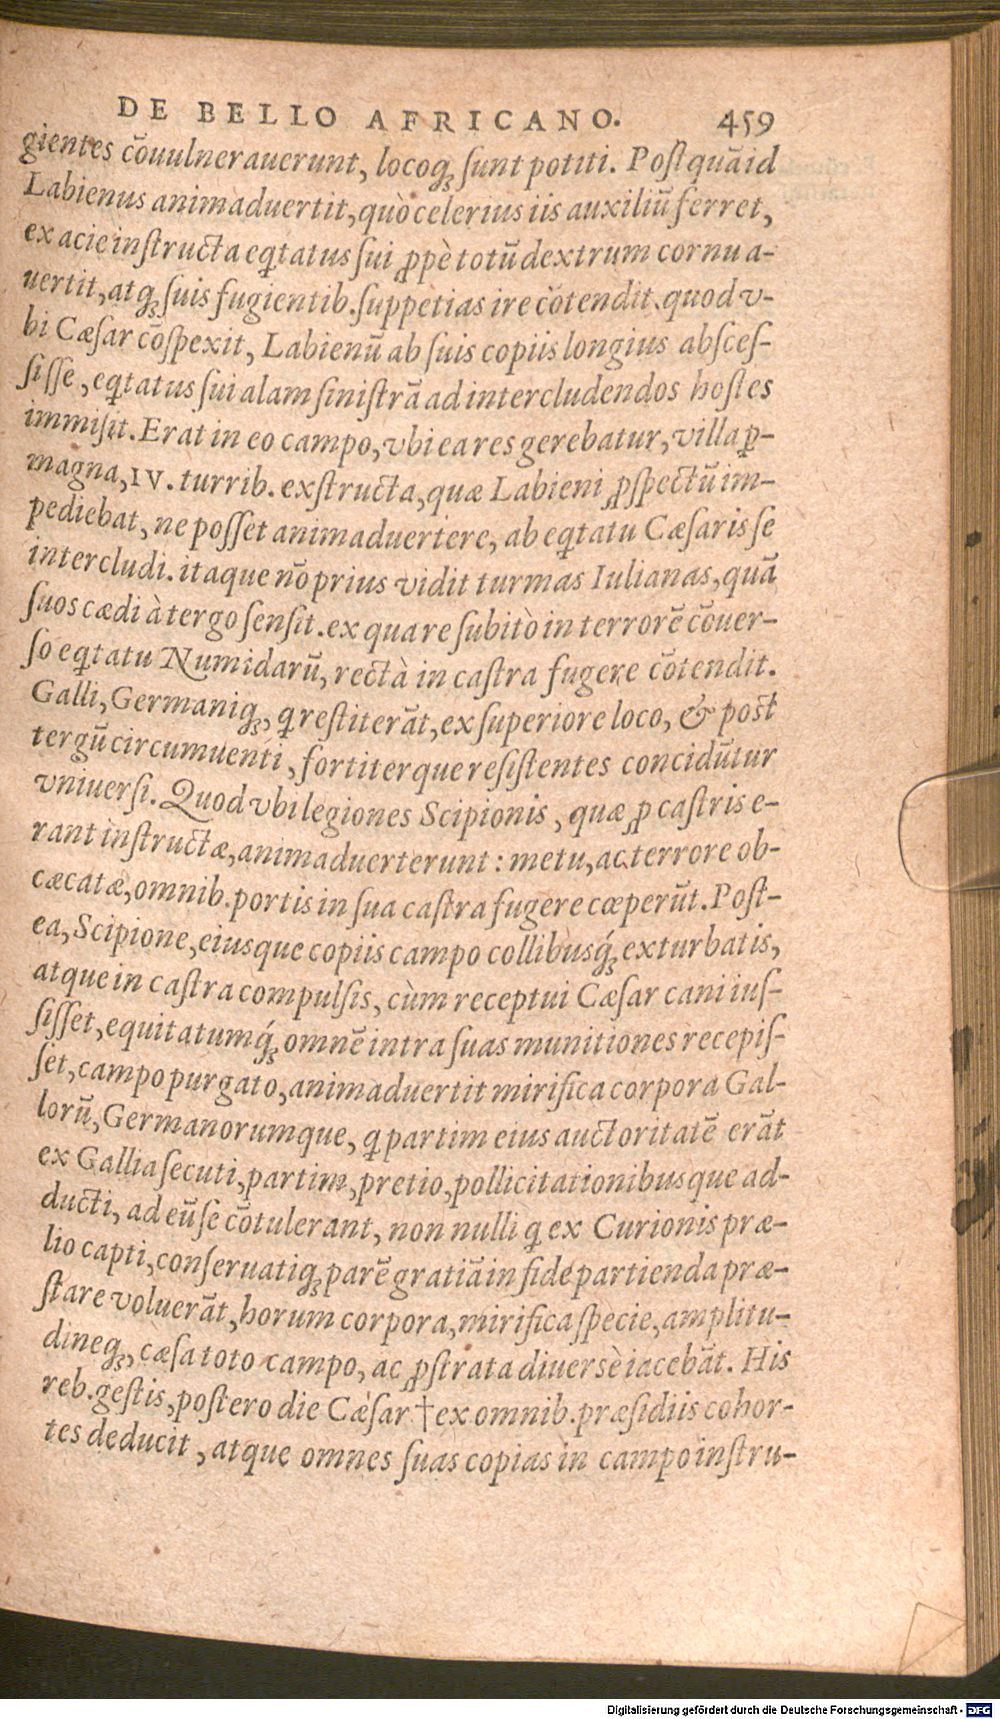 DE BELLO AFRICANO. 459
gientes cōuulnerauerunt, locoq́ꝫ ſunt potiti. Poſtquā id
Labienus animaduertit, quò celerius iis auxiliū ferret,
ex acie inſtructa eq̃tatus sui ꝓpè totū dextrum cornu a-
uertit, atq́ꝫ ſuis fugientib. ſuppetias ire cōtendit. quod v-
bi Cæſar cōſpexit, Labienū ab ſuis copiis longius abſceſ-
ſiſſe, eq̃tatus ſui alam ſiniſtrā ad intercludendos hoſtes
immiſit. Erat in eo campo, vbi ea res gerebatur, villa ꝑ-
magna, IV. turrib. exſtructa, quæ Labieni ꝓſpectū im-
pediebat, ne poſſet animaduertere, ab eq̃tatu Cæſaris ſe
intercludi. itaque nō prius vidit turmas Iulianas, quā
ſuos cædi à tergo ſenſit. ex qua re ſubitò in terrorē cōuer-
ſo eq̃tatu Numidarū, rectà in caſtra fugere cōtendit.
Galli, Germaniq́ꝫ, q̃ reſtiterāt, ex ſuperiore loco, & poſt
tergū circumuenti, fortiterque reſiſtentes concidūtur
vniuerſi. Quod vbi legiones Scipionis, quæ ꝓ caſtris e-
rant inſtructæ, animaduerterunt: metu, ac terrore ob-
cæcatæ, omnib. portis in ſua caſtra fugere cœperūt. Poſt-
ea, Scipione, eiusque copiis campo collibusq́ꝫ exturbatis,
atque in caſtra compulſis, cùm receptui Cæſar cani iuſ-
ſiſſet, equitatumq́ꝫ omnē intra ſuas munitiones recepiſ-
ſet, campo purgato, animaduertit mirifica corpora Gal-
lorū, Germanorumque, q̃ partim eius auctoritatē erāt
ex Gallia ſecuti, partim, pretio, pollicitationibusque ad-
ducti, ad eū ſe cōtulerant, non nulli q̃ ex Curionis præ-
lio capti, conſeruatiq́ꝫ parē gratiā in fide partienda præ-
ſtare voluerāt, horum corpora, mirifica ſpecie, amplitu-
dineq́ꝫ, cæſa toto campo, ac ꝓſtrata diuersè iacebāt. His
reb. geſtis, poſtero die Cæſar † ex omnib. præſidiis cohor-
tes deducit, atque omnes ſuas copias in campo inſtru-
Digitalisierung gefördert durch die Deutsche Forschungsgemeinschaft - DFG